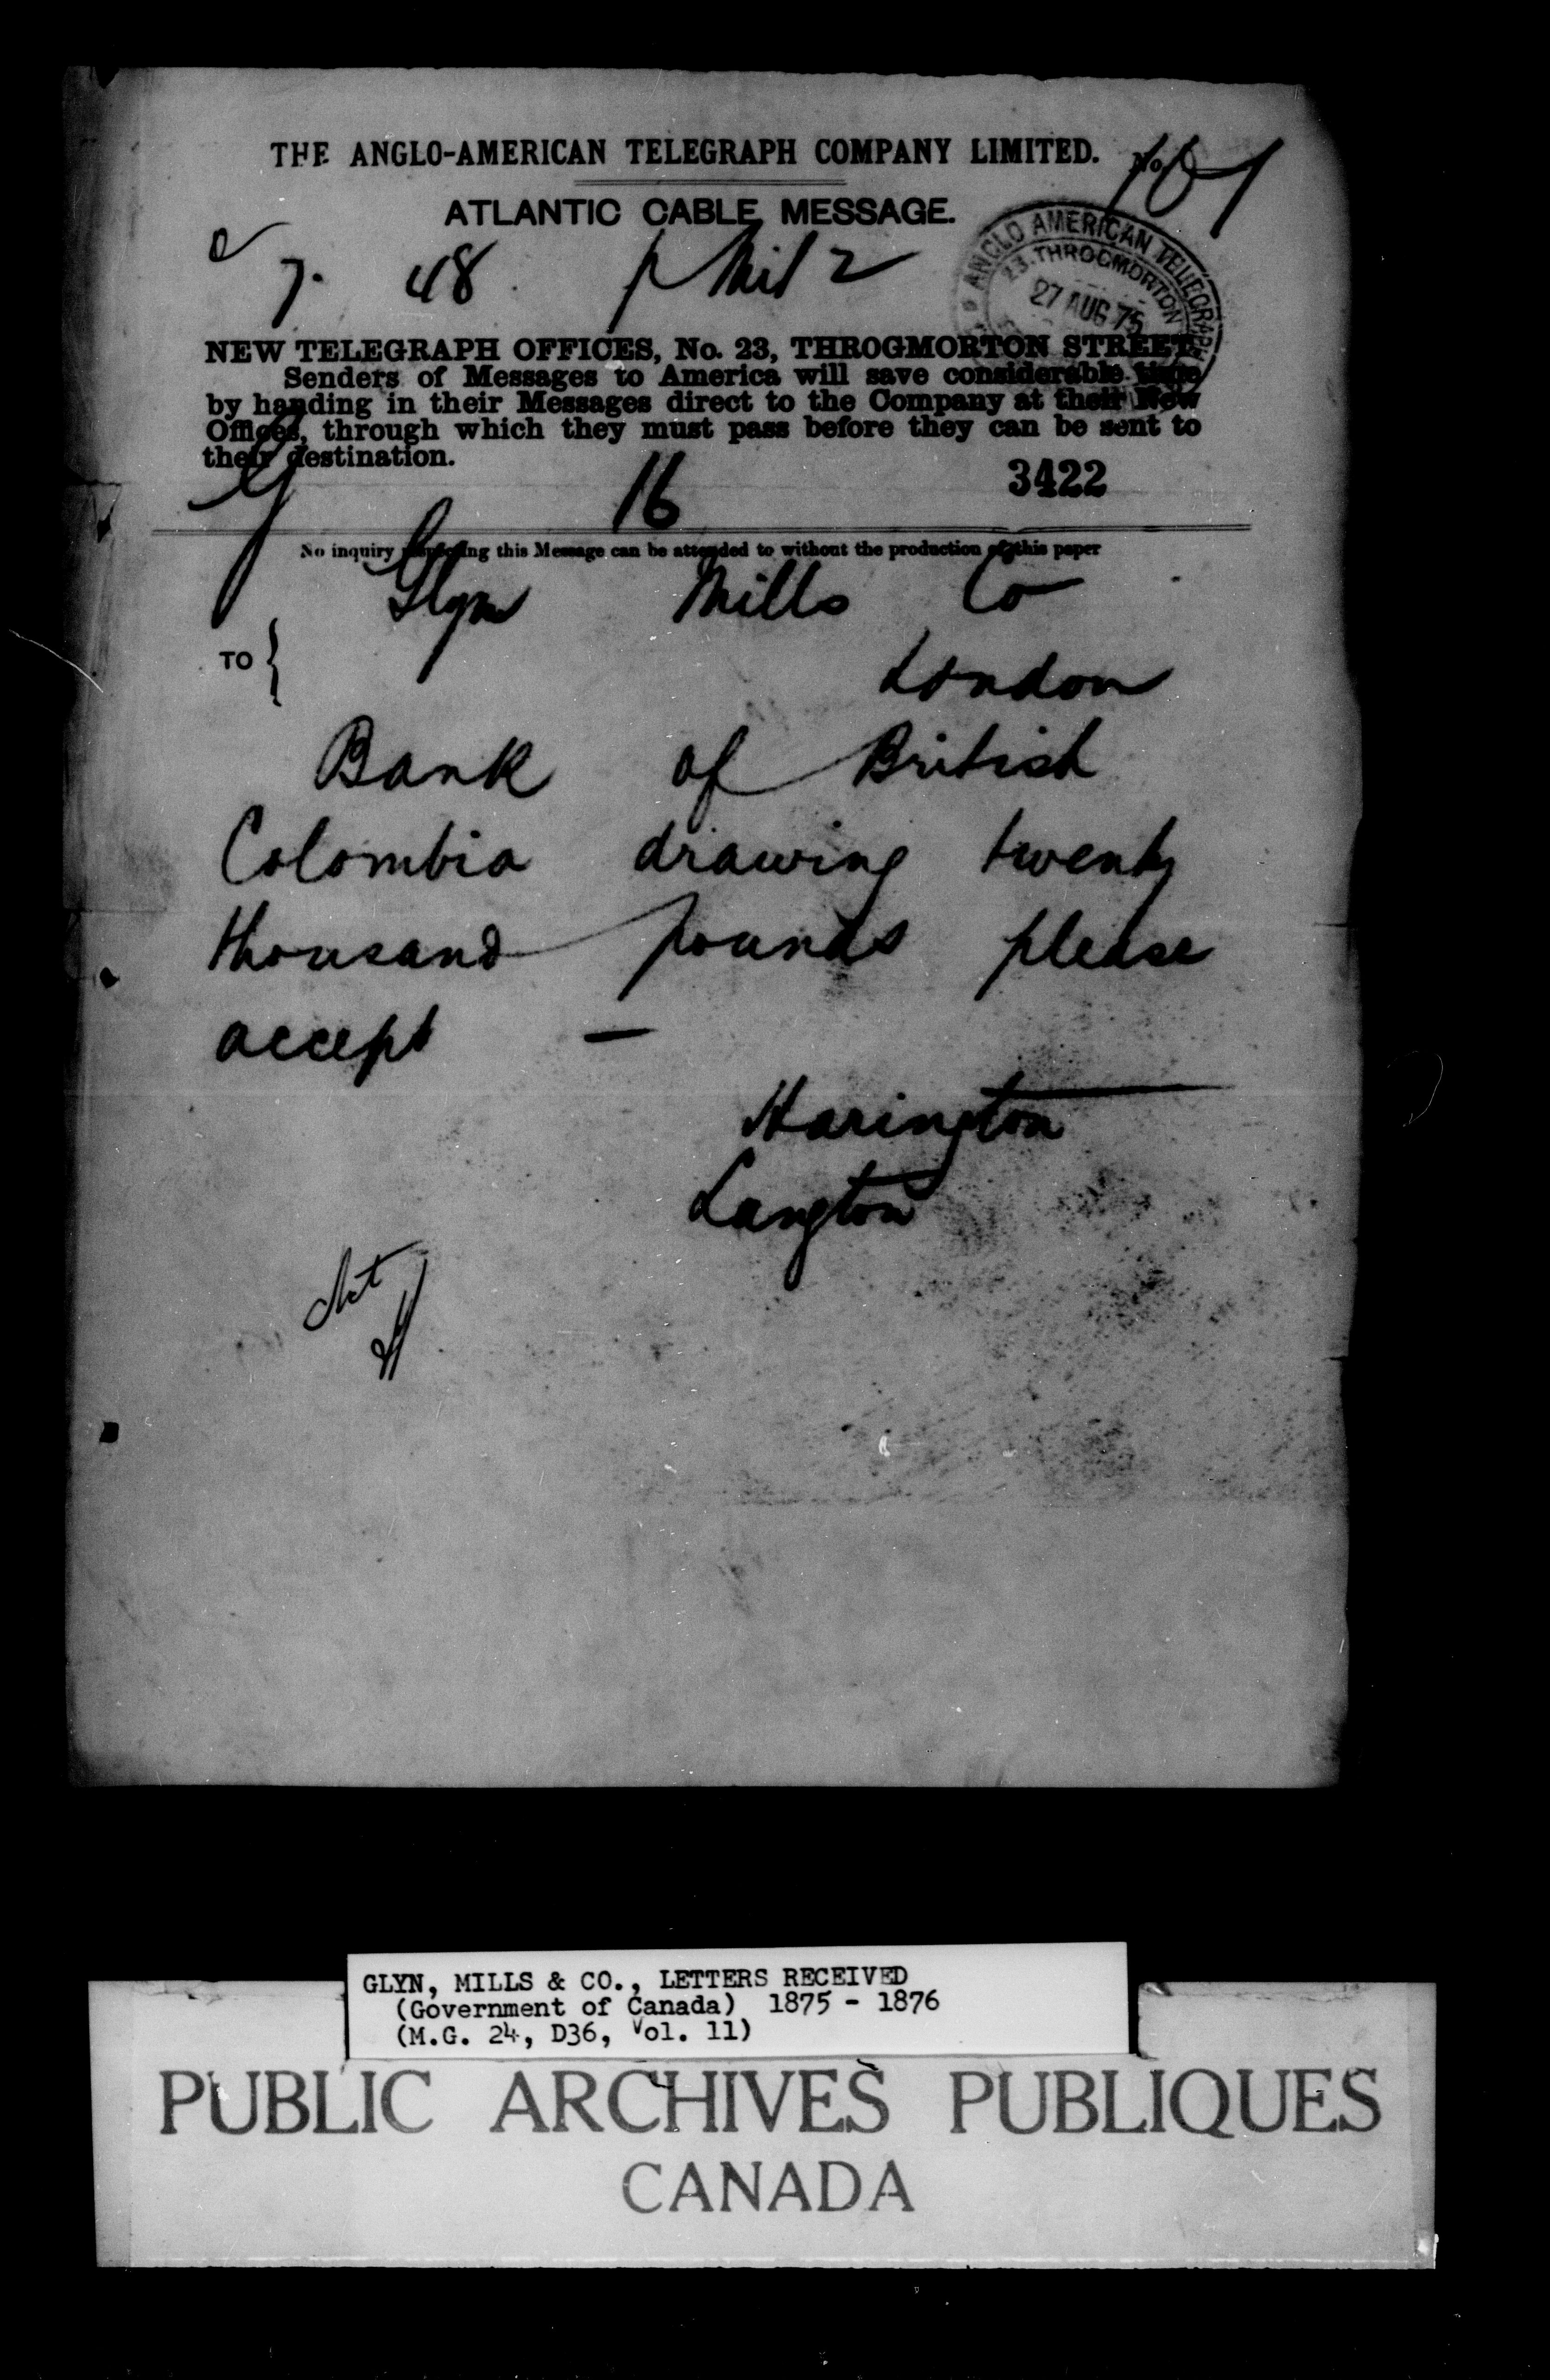 THE ANGLO-AMERICAN TELEGRAPH COMPANY LIMITED. No
ATLANTIC CABLE MESSAGE.
7. 48
ANGLO AMERICAN TELEGRAPH
23. THROGMORTON
27 AUG 75
NEW TELEGRAPH OFFICES, No. 23, THROGMORTON STREET
Senders of Messages to America will save considerable time
by handing in their Messages direct to the Company at their New
Offices, through which they must pass before they can be sent to
their destination.
16 3422
No inquiry respecting this Message can be attended to without the production of this paper
Glyn Mills Co
TO
London
Bank of British
Colombia drawing twenty
thousand pounds please
accept —
Harington
Langton
GLYN, MILLS & CO., LETTERS RECEIVED
(Government of Canada) 1875 - 1876
(M.G. 24, D36, Vol. 11)
PUBLIC ARCHIVES PUBLIQUES
CANADA